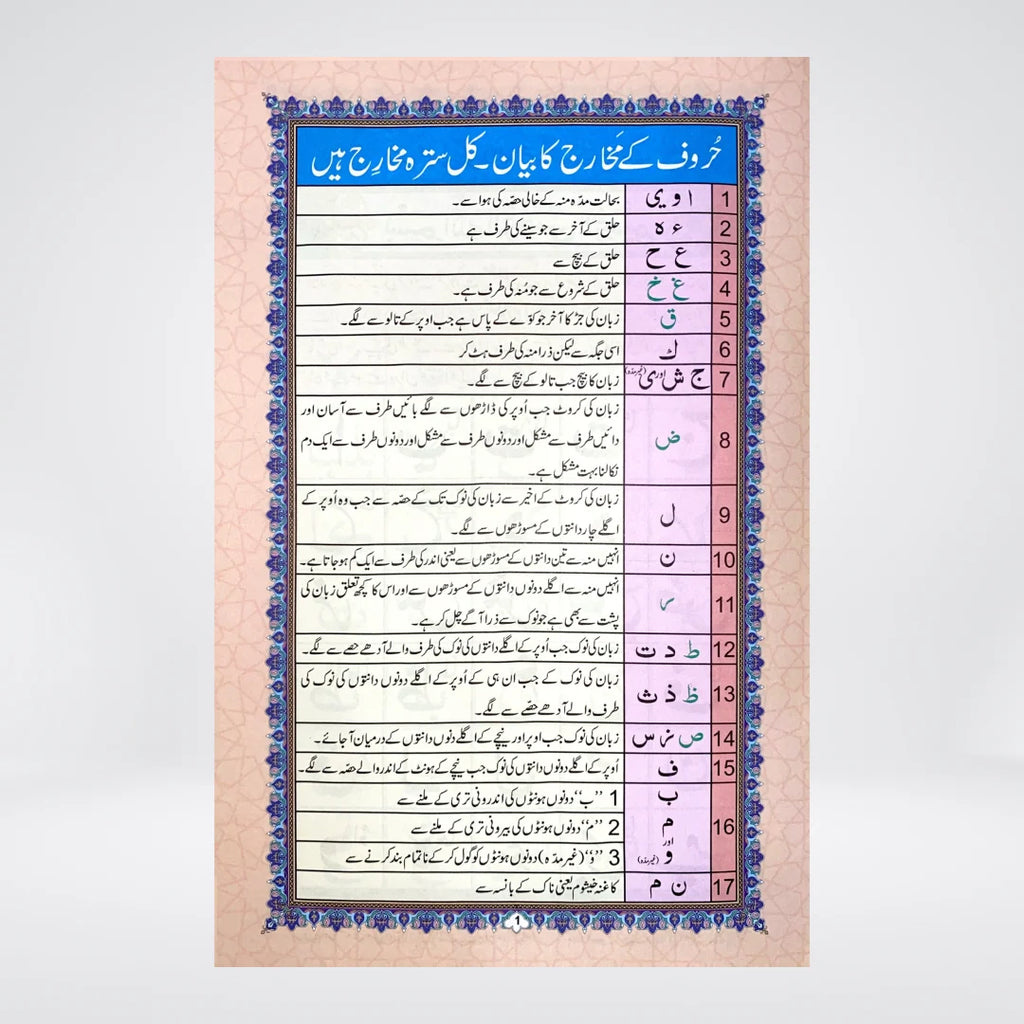 حُروف کے مَخارج کا بیان۔ کل سترہ مخارِج ہیں
1 ا و یی بحالت مدّہ منہ کے خالی حصّہ کی ہوا سے۔
2 ء ہ حلق کے آخر سے جو سینے کی طرف ہے
3 ع ح حلق کے بیچ سے
4 غ خ حلق کے شروع سے جو مُنہ کی طرف ہے۔
5 ق زبان کی جڑ کا آخر جو کوّے کے پاس ہے جب اوپر کے تالو سے لگے۔
6 ک اسی جگہ سے لیکن ذرا منہ کی طرف ہٹ کر
7 ج ش اور ی (غیر مدہ) زبان کا بیچ جب تالو کے بیچ سے لگے۔
8 ض زبان کی کروٹ جب اُوپر کی ڈاڑھوں سے لگے بائیں طرف سے آسان اور
دائیں طرف سے مشکل اور دونوں طرف سے مشکل اور دونوں طرف سے ایک دم
نکالنا بہت مشکل ہے۔
9 ل زبان کی کروٹ کے اخیر سے زبان کی نوک تک کے حصّہ سے جب وہ اُوپر کے
اگلے چار دانتوں کے مسوڑھوں سے لگے۔
10 ن انہیں منہ سے تین دانتوں کے مسوڑھوں سے یعنی اندر کی طرف سے ایک کم ہو جاتا ہے۔
11 ر انہیں منہ سے اگلے دونوں دانتوں کے مسوڑھوں سے اور اس کا کچھ تعلق زبان کی
پشت سے بھی ہے جو نوک سے ذرا آگے چل کر ہے۔
12 ط د ت زبان کی نوک جب اُوپر کے اگلے دانتوں کی نوک کی طرف والے آدھے حصے سے لگے۔
13 ظ ذ ث زبان کی نوک کے جب ان ہی کے اُوپر کے اگلے دونوں دانتوں کی نوک کی
طرف والے آدھے حصّے سے لگے۔
14 ص ز س زبان کی نوک جب اوپر اور نیچے کے اگلے دونوں دانتوں کے درمیان آجائے۔
15 ف اُوپر کے اگلے دونوں دانتوں کی نوک جب نیچے کے ہونٹ کے اندر والے حصّہ سے لگے۔
16 ب 1 ’’ب‘‘ دونوں ہونٹوں کی اندرونی تری کے ملنے سے
م 2 ’’م‘‘ دونوں ہونٹوں کی بیرونی تری کے ملنے سے
اور و (غیر مدہ) 3 ’’و‘‘ (غیر مدّہ) دونوں ہونٹوں کو گول کر کے ناتمام بند کرنے سے
17 ن م کا غنہ خیشوم یعنی ناک کے بانسہ سے
1